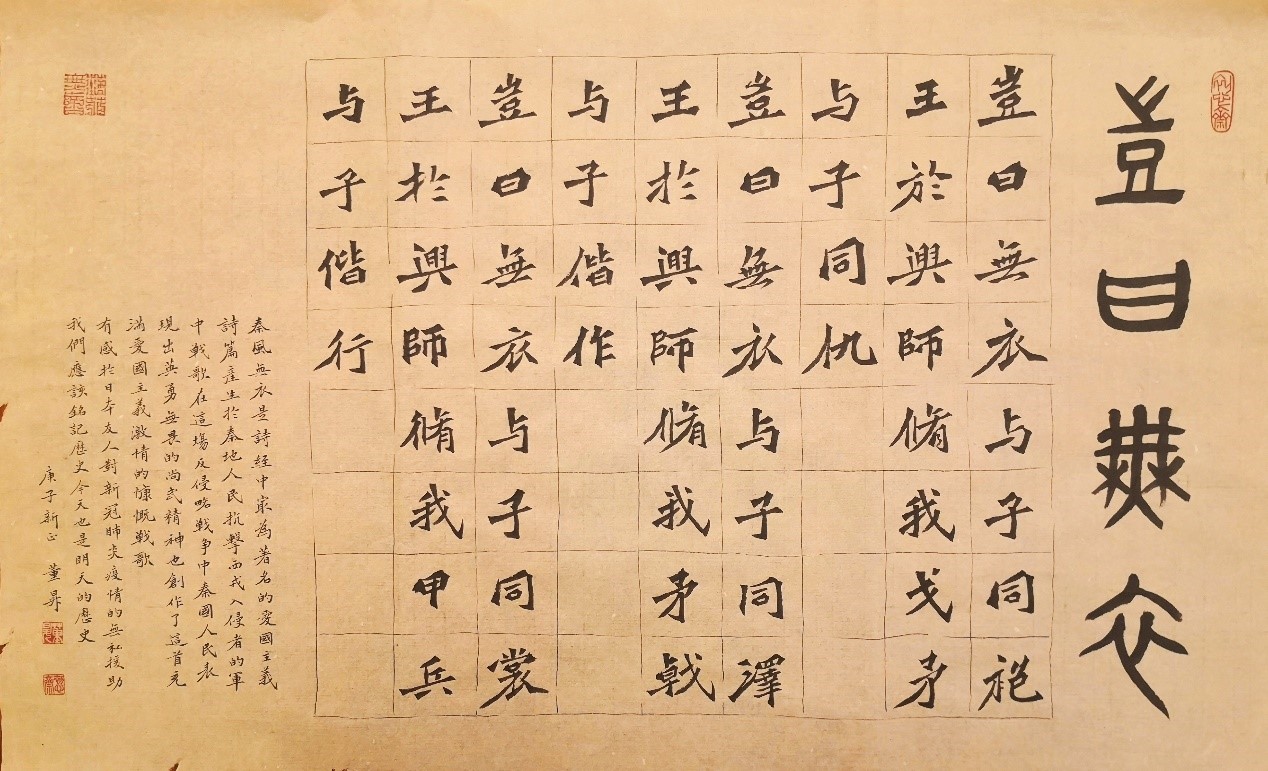 豈曰無衣
豈曰無衣与子同袍
王於興師脩我戈矛
与子同仇
豈曰無衣与子同澤
王於興師脩我矛戟
与子偕作
豈曰無衣与子同裳
王於興師脩我甲兵
与子偕行
秦風無衣是詩經中最為著名的愛國主義
詩篇產生於秦地人民抗擊西戎入侵者的軍
中戰歌在這場反侵略戰争中秦國人民表
現出英勇無畏的尚武精神也創作了這首充
滿愛國主義激情的慷慨戰歌
有感於日本友人對新冠肺炎疫情的無私援助
我們應該銘記歷史今天也是明天的歷史
庚子新正 董昇